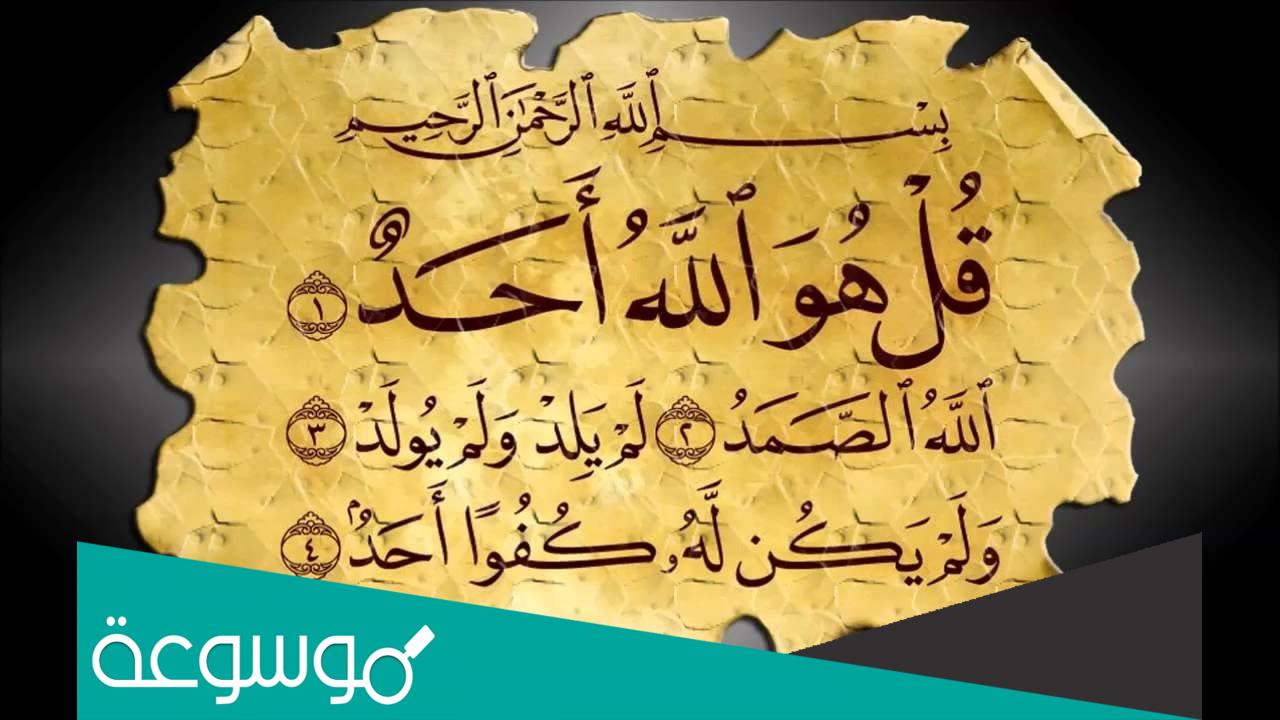 بِسْمِ ٱللَّهِ ٱلرَّحْمَٰنِ ٱلرَّحِيمِ
قُلْ هُوَ ٱللَّهُ أَحَدٌ ١
ٱللَّهُ ٱلصَّمَدُ ٢ لَمْ يَلِدْ وَلَمْ يُولَدْ ٣
وَلَمْ يَكُن لَّهُۥ كُفُوًا أَحَدُۢ ٤
موسوعة